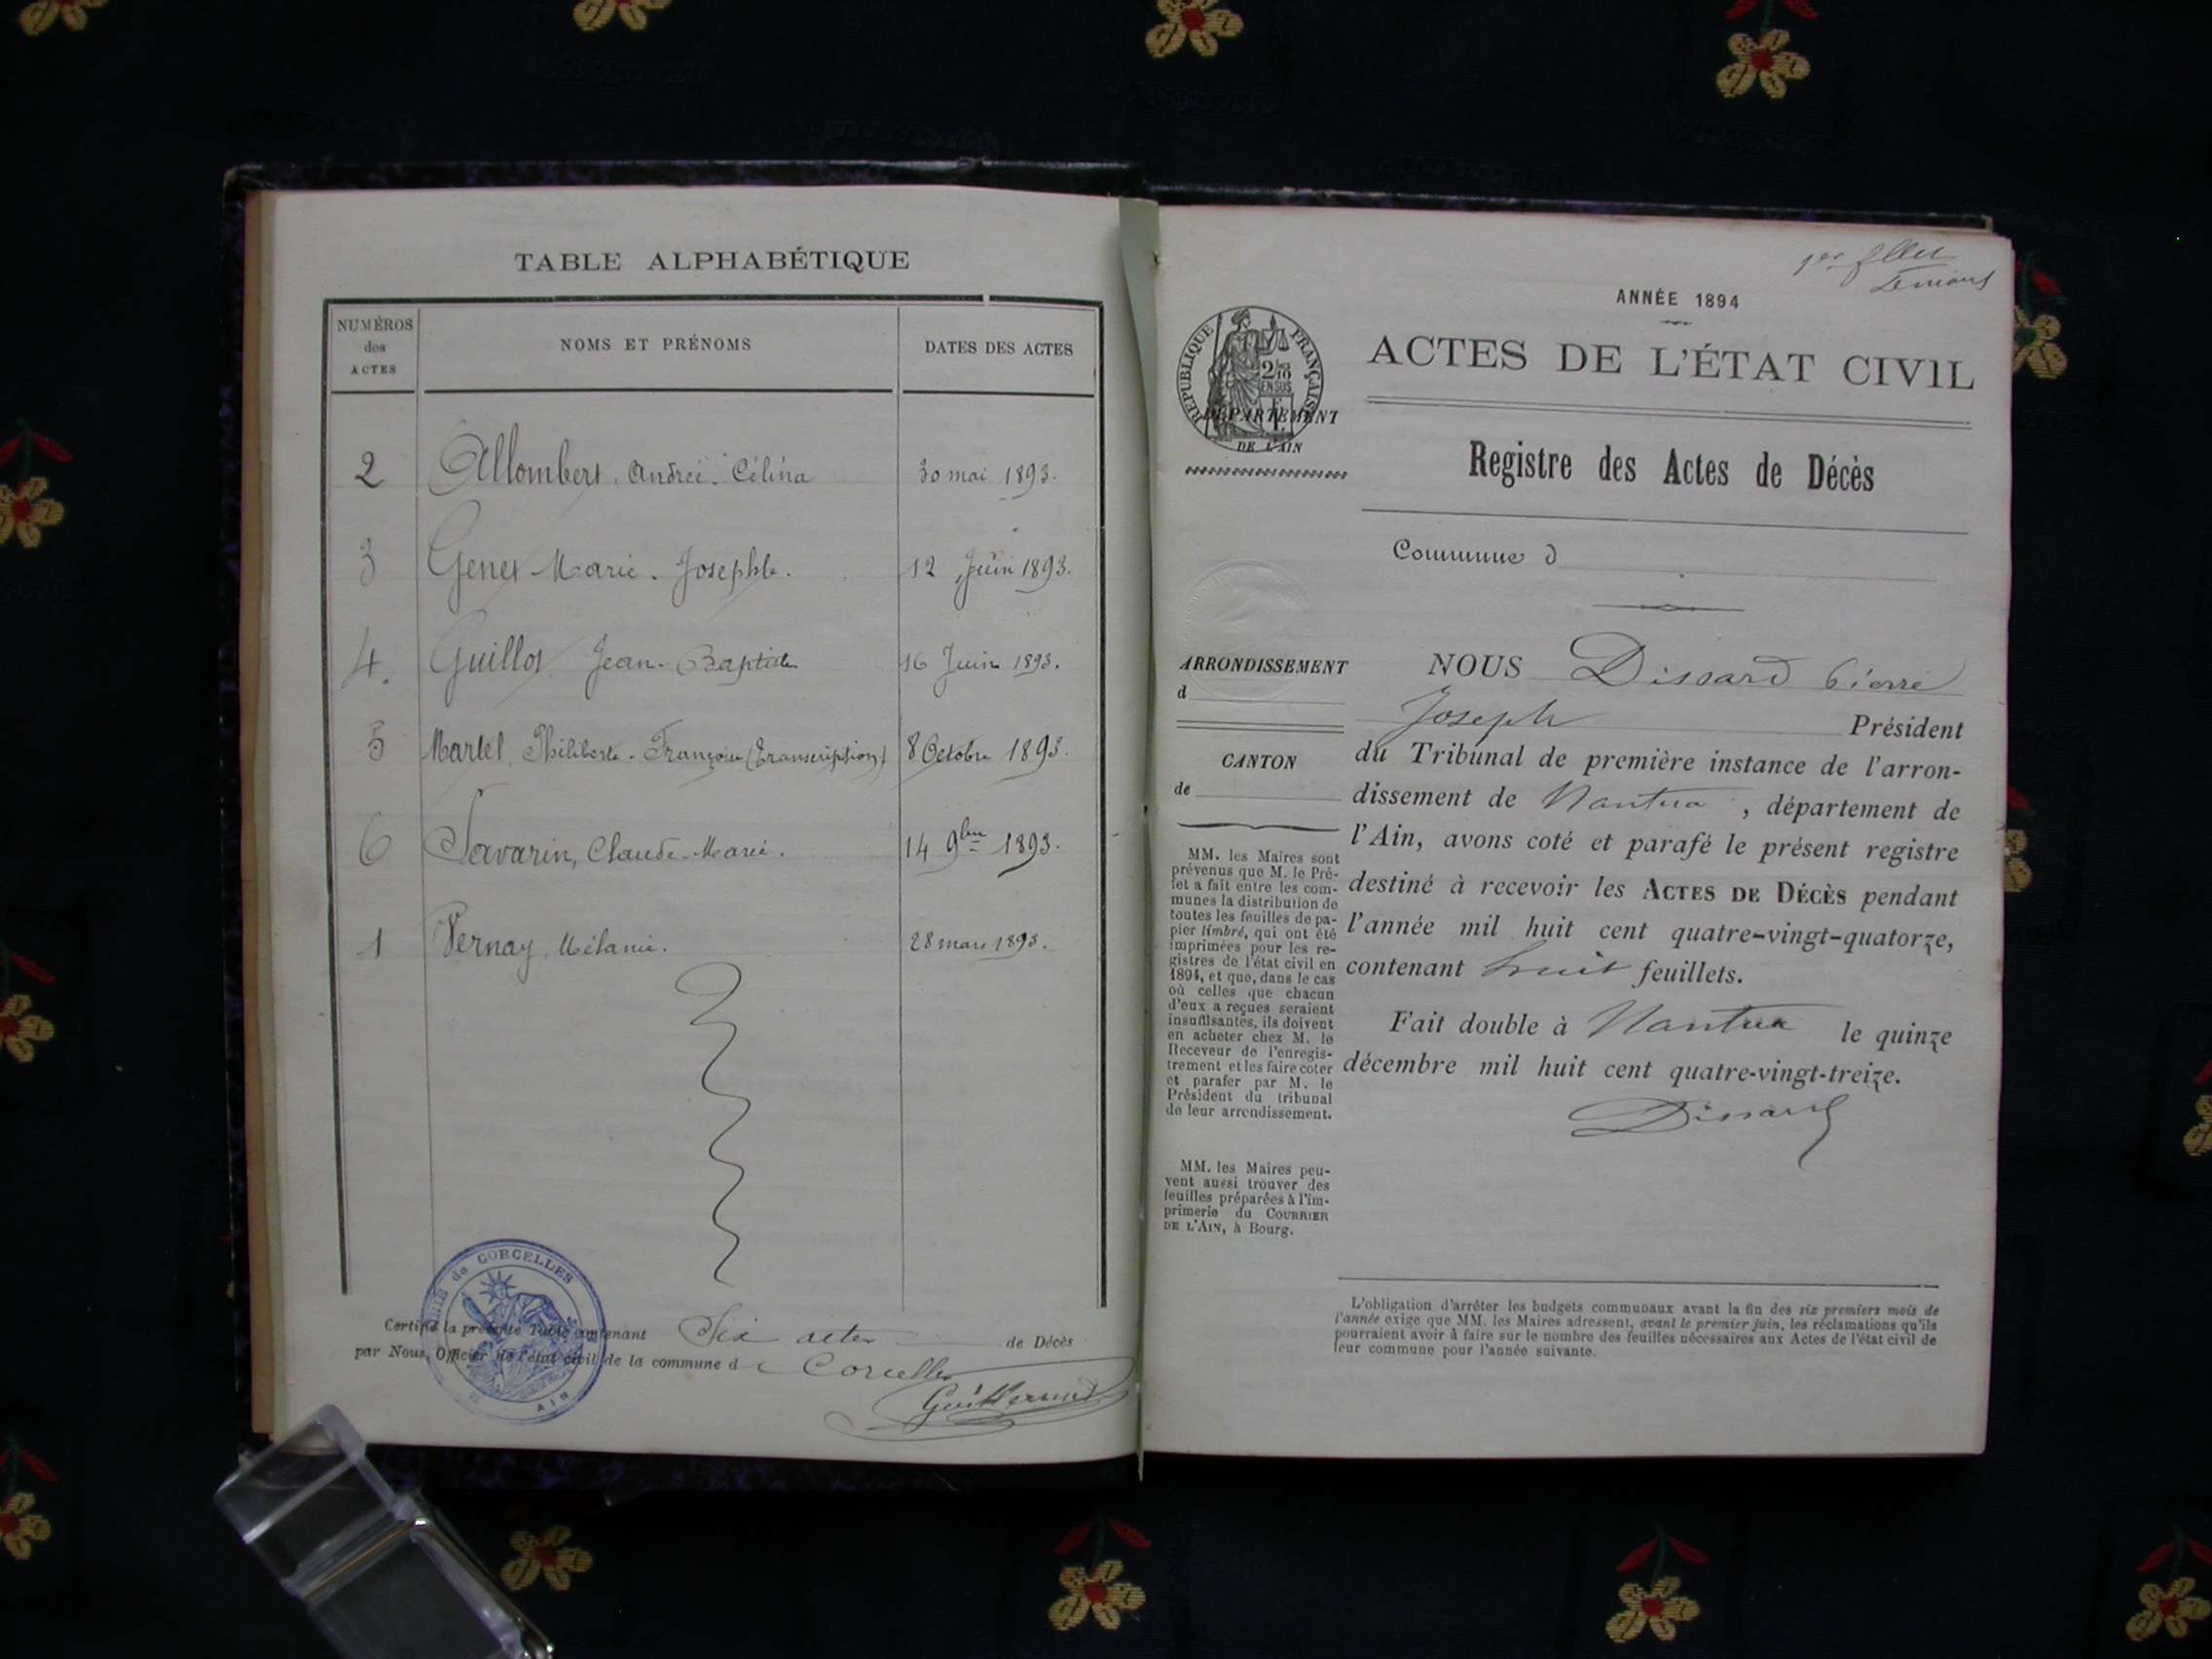 TABLE ALPHABÉTIQUE
NUMÉROS
des
ACTES
NOMS ET PRÉNOMS
DATES DES ACTES
2 Allombert, Andrée. Célina 30 mai 1893.
3 Genet Marie. Josephte. 12 Juin 1893.
4. Guillot Jean-Baptiste 16 Juin 1893.
5 Martel Philiberte. Françoise (Transcription) 8 Octobre 1893.
6 Savarin, Claude-Marie. 14 9bre 1893.
1 Vernay, Mélanie. 28 mars 1893.
MAIRIE de CORCELLES
AIN
Certifié la présente Table contenant Six actes de Décès
par Nous, Officier de l'état civil de la commune de Corcelles
Guillermet
1er
ANNÉE 1894
ACTES DE L'ÉTAT CIVIL
RÉPUBLIQUE FRANÇAISE
2/10
EN SUS
DÉPARTEMENT
DE L'AIN
Registre des Actes de Décès
Commune d
ARRONDISSEMENT
d
CANTON
de
MM. les Maires sont
prévenus que M. le Pré-
fet a fait entre les com-
munes la distribution de
toutes les feuilles de pa-
pier timbré, qui ont été
imprimées pour les re-
gistres de l'état civil en
1894, et que, dans le cas
où celles que chacun
d'eux a reçues seraient
insuffisantes, ils doivent
en acheter chez M. le
Receveur de l'enregis-
trement et les faire coter
et parafer par M. le
Président du tribunal
de leur arrondissement.
MM. les Maires peu-
vent aussi trouver des
feuilles préparées à l'im-
primerie du COURRIER
DE L'AIN, à Bourg.
NOUS Dissard Pierre
Joseph Président
du Tribunal de première instance de l'arron-
dissement de Nantua, département de
l'Ain, avons coté et parafé le présent registre
destiné à recevoir les ACTES DE DÉCÈS pendant
l'année mil huit cent quatre-vingt-quatorze,
contenant huit feuillets.
Fait double à Nantua le quinze
décembre mil huit cent quatre-vingt-treize.
Dissard
L'obligation d'arrêter les budgets communaux avant la fin des six premiers mois de
l'année exige que MM. les Maires adressent, avant le premier juin, les réclamations qu'ils
pourraient avoir à faire sur le nombre des feuilles nécessaires aux Actes de l'état civil de
leur commune pour l'année suivante.